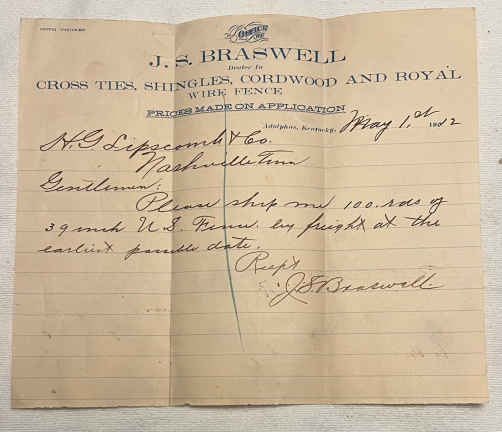 OFFICE OF
J. S. BRASWELL
Dealer In
CROSS TIES, SHINGLES, CORDWOOD AND ROYAL
WIRE FENCE
PRICES MADE ON APPLICATION
Adolphus, Kentucky, May 1, st 1902
H. G. Lipscomb & Co.
Nashville Tenn
Gentlemen:
Please ship me 100 rds of
39 inch U.S. Fence by freight at the
earliest possible date.
Respt
J. S. Braswell